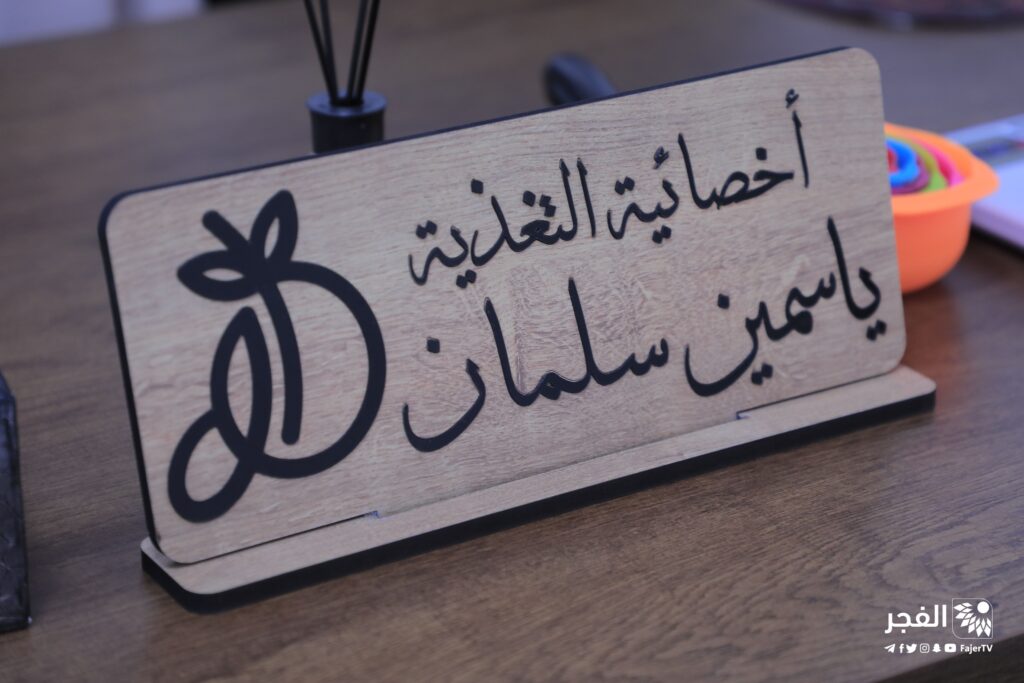 أخصائية التغذية
ياسمين سلمان
الفجر
FajerTV